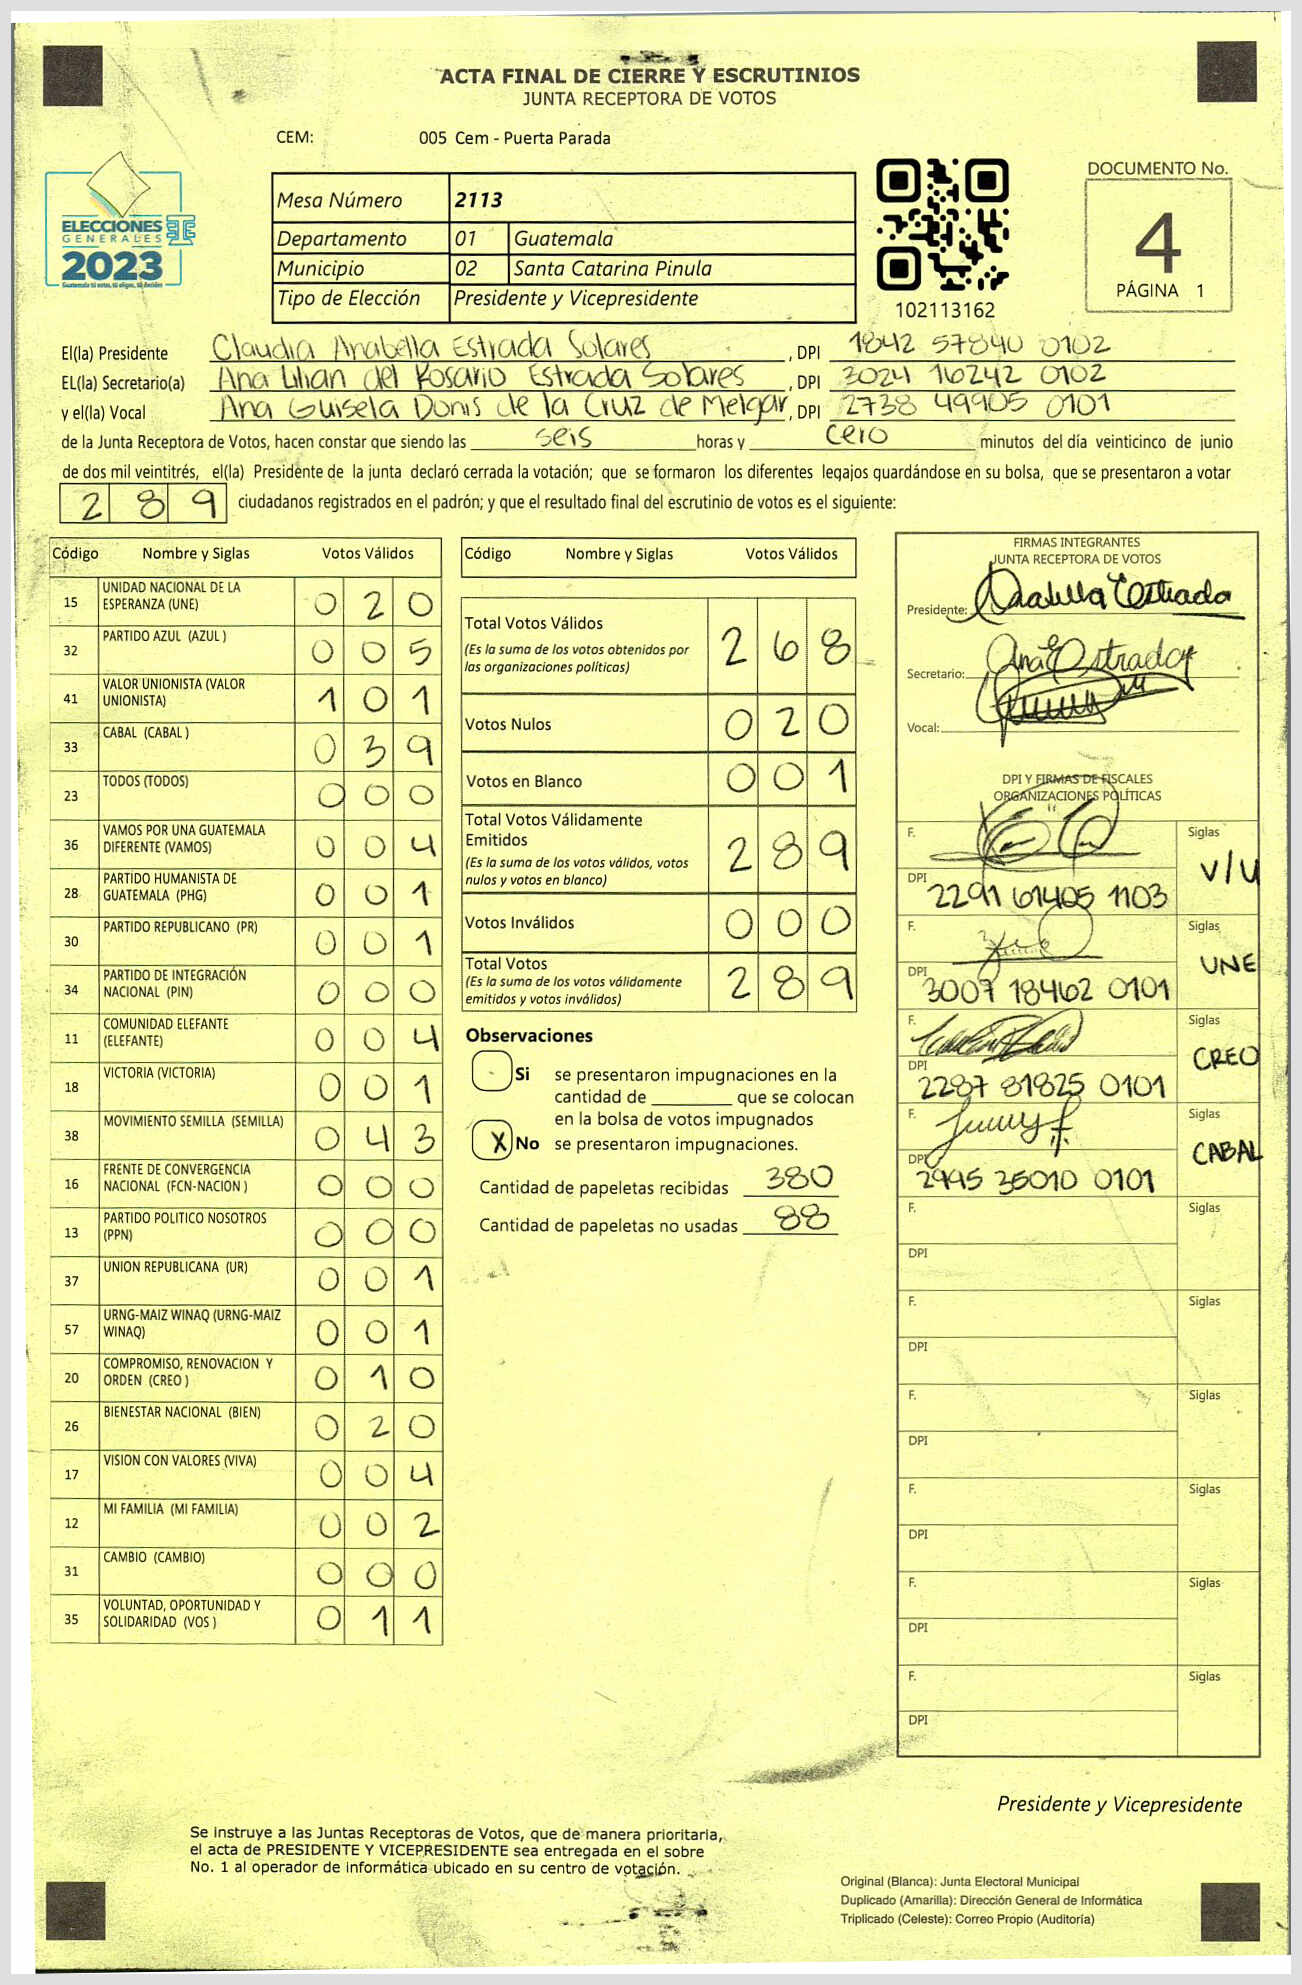 ACTA FINAL DE CIERRE Y ESCRUTINIOS
JUNTA RECEPTORA DE VOTOS
CEM: 005 Cem - Puerta Parada
ELECCIONES
GENERALES
2023
Guatemala tú votas, tú eliges, tú decides
Mesa Número 2113
Departamento 01 Guatemala
Municipio 02 Santa Catarina Pinula
Tipo de Elección Presidente y Vicepresidente
102113162
DOCUMENTO No.
4
PÁGINA 1
El(la) Presidente Claudia Anabella Estrada Solares, DPI 1842 57840 0102
EL(la) Secretario(a) Ana Lilian del Rosario Estrada Solares, DPI 3024 16242 0102
y el(la) Vocal Ana Guisela Donis de la Cruz de Melgar, DPI 2738 49905 0101
de la Junta Receptora de Votos, hacen constar que siendo las seis horas y cero minutos del día veinticinco de junio
de dos mil veintitrés, el(la) Presidente de la junta declaró cerrada la votación; que se formaron los diferentes legajos guardándose en su bolsa, que se presentaron a votar
289 ciudadanos registrados en el padrón; y que el resultado final del escrutinio de votos es el siguiente:
Código Nombre y Siglas Votos Válidos
15 UNIDAD NACIONAL DE LA ESPERANZA (UNE) 020
32 PARTIDO AZUL (AZUL ) 005
41 VALOR UNIONISTA (VALOR UNIONISTA) 101
33 CABAL (CABAL ) 039
23 TODOS (TODOS) 000
36 VAMOS POR UNA GUATEMALA DIFERENTE (VAMOS) 004
28 PARTIDO HUMANISTA DE GUATEMALA (PHG) 001
30 PARTIDO REPUBLICANO (PR) 001
34 PARTIDO DE INTEGRACIÓN NACIONAL (PIN) 000
11 COMUNIDAD ELEFANTE (ELEFANTE) 004
18 VICTORIA (VICTORIA) 001
38 MOVIMIENTO SEMILLA (SEMILLA) 043
16 FRENTE DE CONVERGENCIA NACIONAL (FCN-NACION ) 000
13 PARTIDO POLITICO NOSOTROS (PPN) 000
37 UNION REPUBLICANA (UR) 001
57 URNG-MAIZ WINAQ (URNG-MAIZ WINAQ) 001
20 COMPROMISO, RENOVACION Y ORDEN (CREO ) 010
26 BIENESTAR NACIONAL (BIEN) 020
17 VISION CON VALORES (VIVA) 004
12 MI FAMILIA (MI FAMILIA) 002
31 CAMBIO (CAMBIO) 000
35 VOLUNTAD, OPORTUNIDAD Y SOLIDARIDAD (VOS ) 011
Código Nombre y Siglas Votos Válidos
Total Votos Válidos 268
(Es la suma de los votos obtenidos por
las organizaciones políticas)
Votos Nulos 020
Votos en Blanco 001
Total Votos Válidamente
Emitidos 289
(Es la suma de los votos válidos, votos
nulos y votos en blanco)
Votos Inválidos 000
Total Votos 289
(Es la suma de los votos válidamente
emitidos y votos inválidos)
Observaciones
Si se presentaron impugnaciones en la
cantidad de ________ que se colocan
en la bolsa de votos impugnados
X No se presentaron impugnaciones.
Cantidad de papeletas recibidas 380
Cantidad de papeletas no usadas 88
FIRMAS INTEGRANTES
JUNTA RECEPTORA DE VOTOS
Presidente: Anabella Estrada
Secretario:
Vocal:
DPI Y FIRMAS DE FISCALES
ORGANIZACIONES POLÍTICAS
F. Siglas V/U
DPI 2291 61405 1103
F. Siglas UNE
DPI 3007 18462 0101
F. Siglas CREO
DPI 2287 81825 0101
F. Siglas CABAL
DPI 2995 35010 0101
F. Siglas
DPI
F. Siglas
DPI
F. Siglas
DPI
F. Siglas
DPI
F. Siglas
DPI
F. Siglas
DPI
Presidente y Vicepresidente
Se instruye a las Juntas Receptoras de Votos, que de manera prioritaria,
el acta de PRESIDENTE Y VICEPRESIDENTE sea entregada en el sobre
No. 1 al operador de informática ubicado en su centro de votación.
Original (Blanca): Junta Electoral Municipal
Duplicado (Amarilla): Dirección General de Informática
Triplicado (Celeste): Correo Propio (Auditoría)